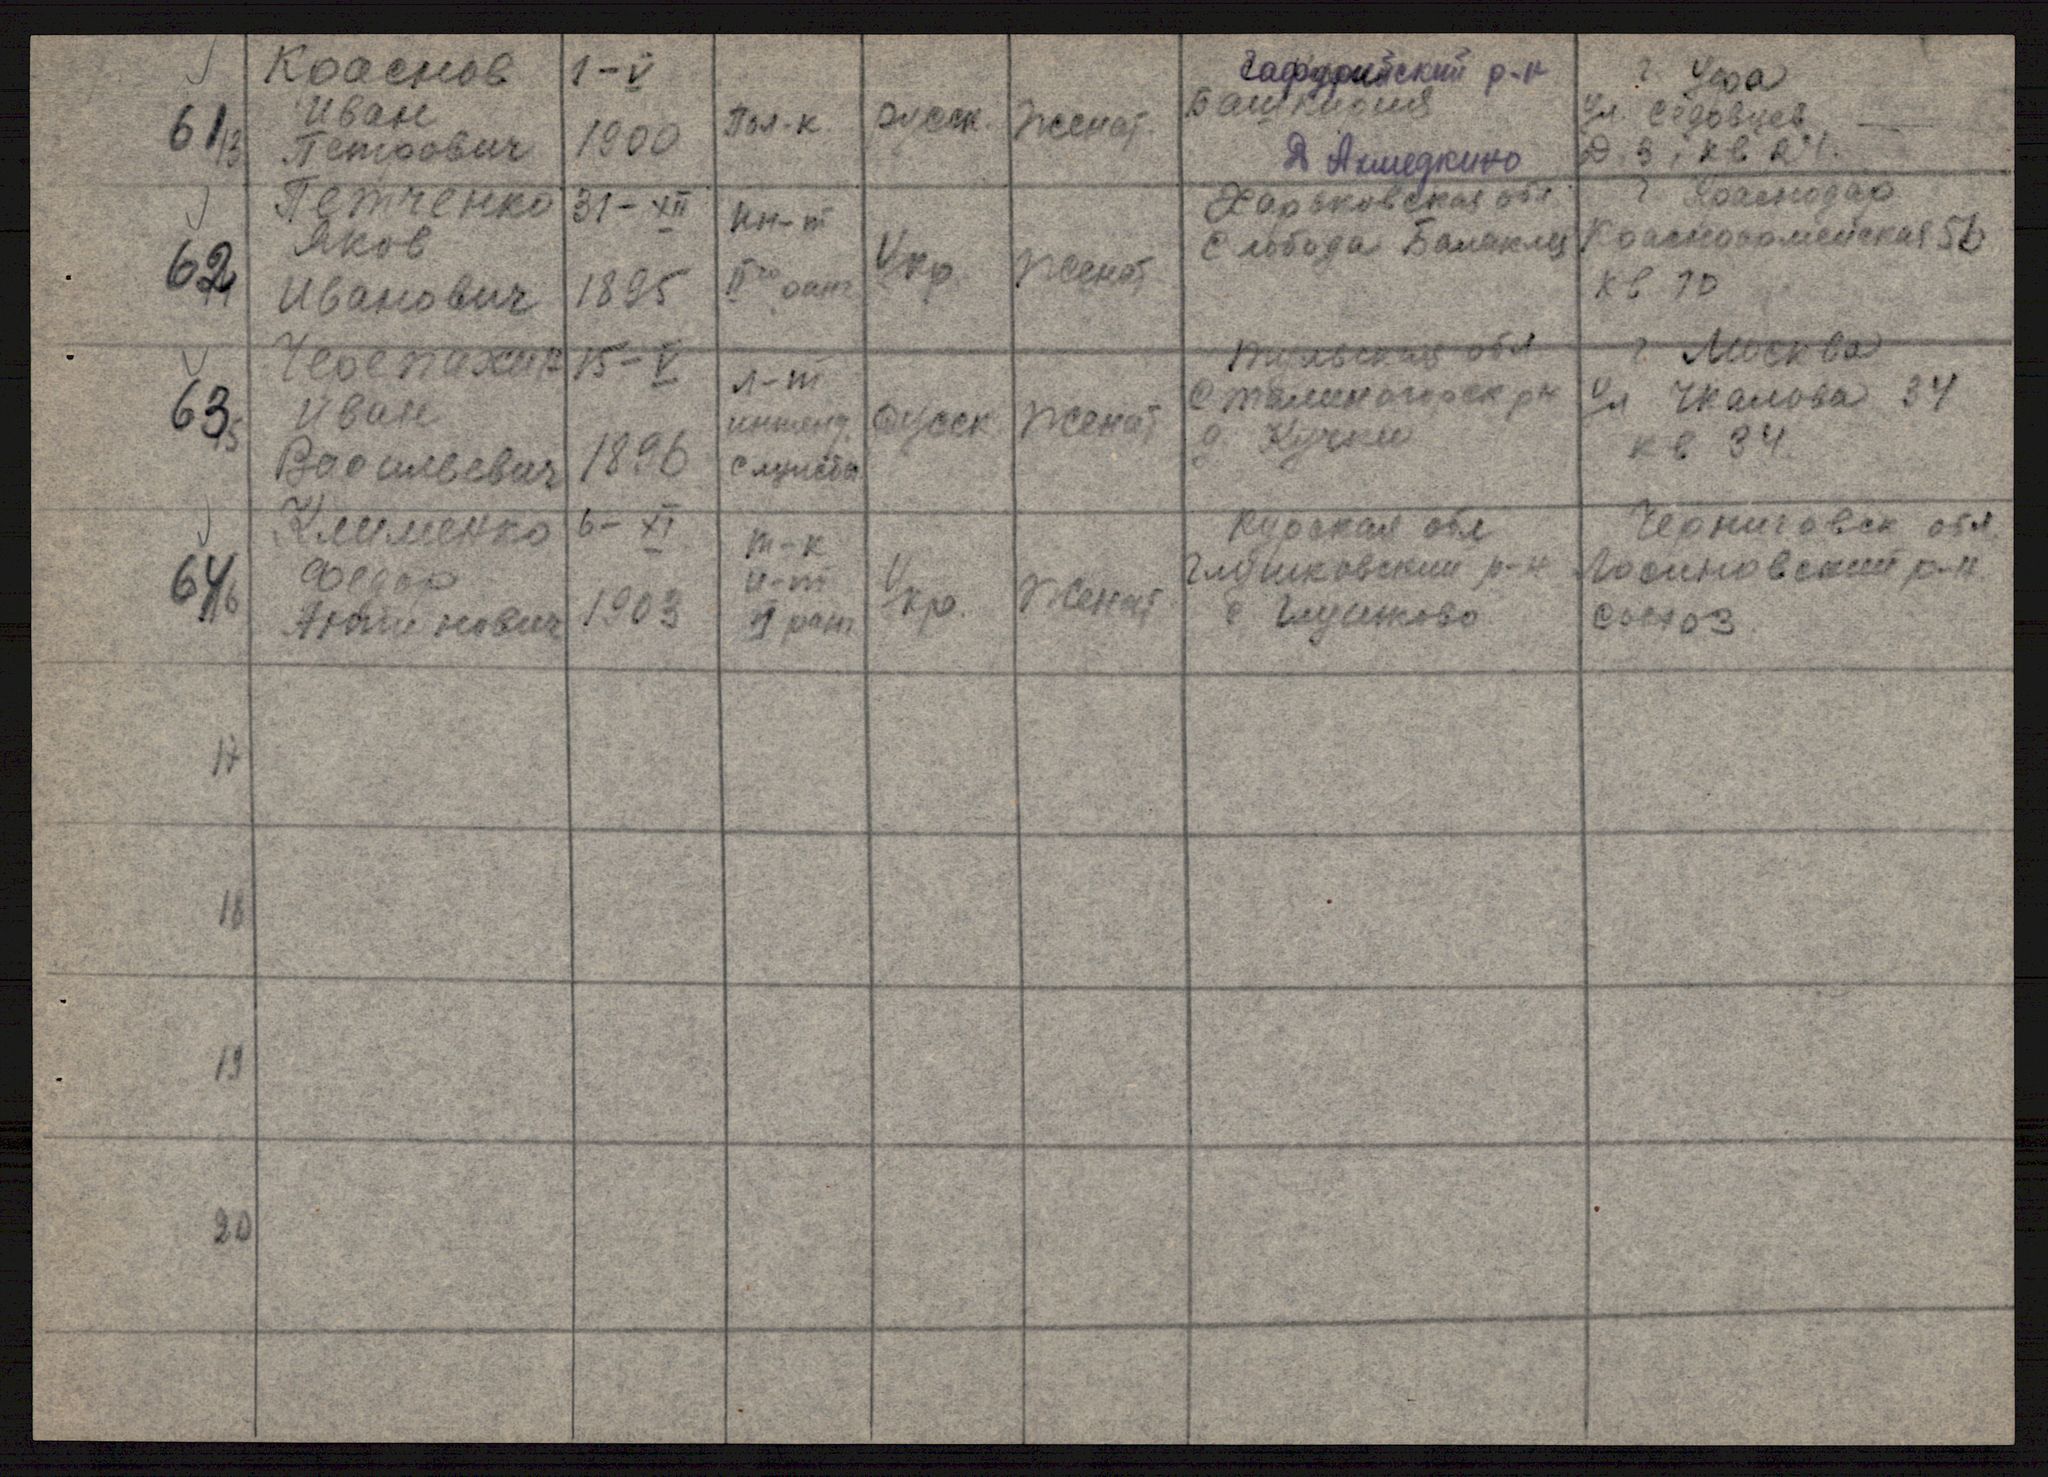 61/13 Краснов Иван Петрович 1-V 1900 Пол-к. русск. Женат. Гафурийский р-н Башкирия Д Ахмедкино г. Уфа ул. Седовцев Д. 3, кв
62/14 Петченко Яков Иванович 31-XII 1895 Ин-т II го ранг Укр. Женат Харьковская обл Слобода Балаклц г. Краснодар Красноармейская 56 кв 10
63/15 Черепахин Иван Васильевич 15-V 1896 л-т интенд. службы русск Женат Тульская обл Сталиногорск рн д Кучки г Москва ул Чкалова 34 кв 34.
64/16 Клименко Федор 6-XI 1903 т-к и-т I ранг Укр. Женат Курская обл Глушковский р-н с Глушково Черниговск обл. Лосиновский р-н
17
18
19
20